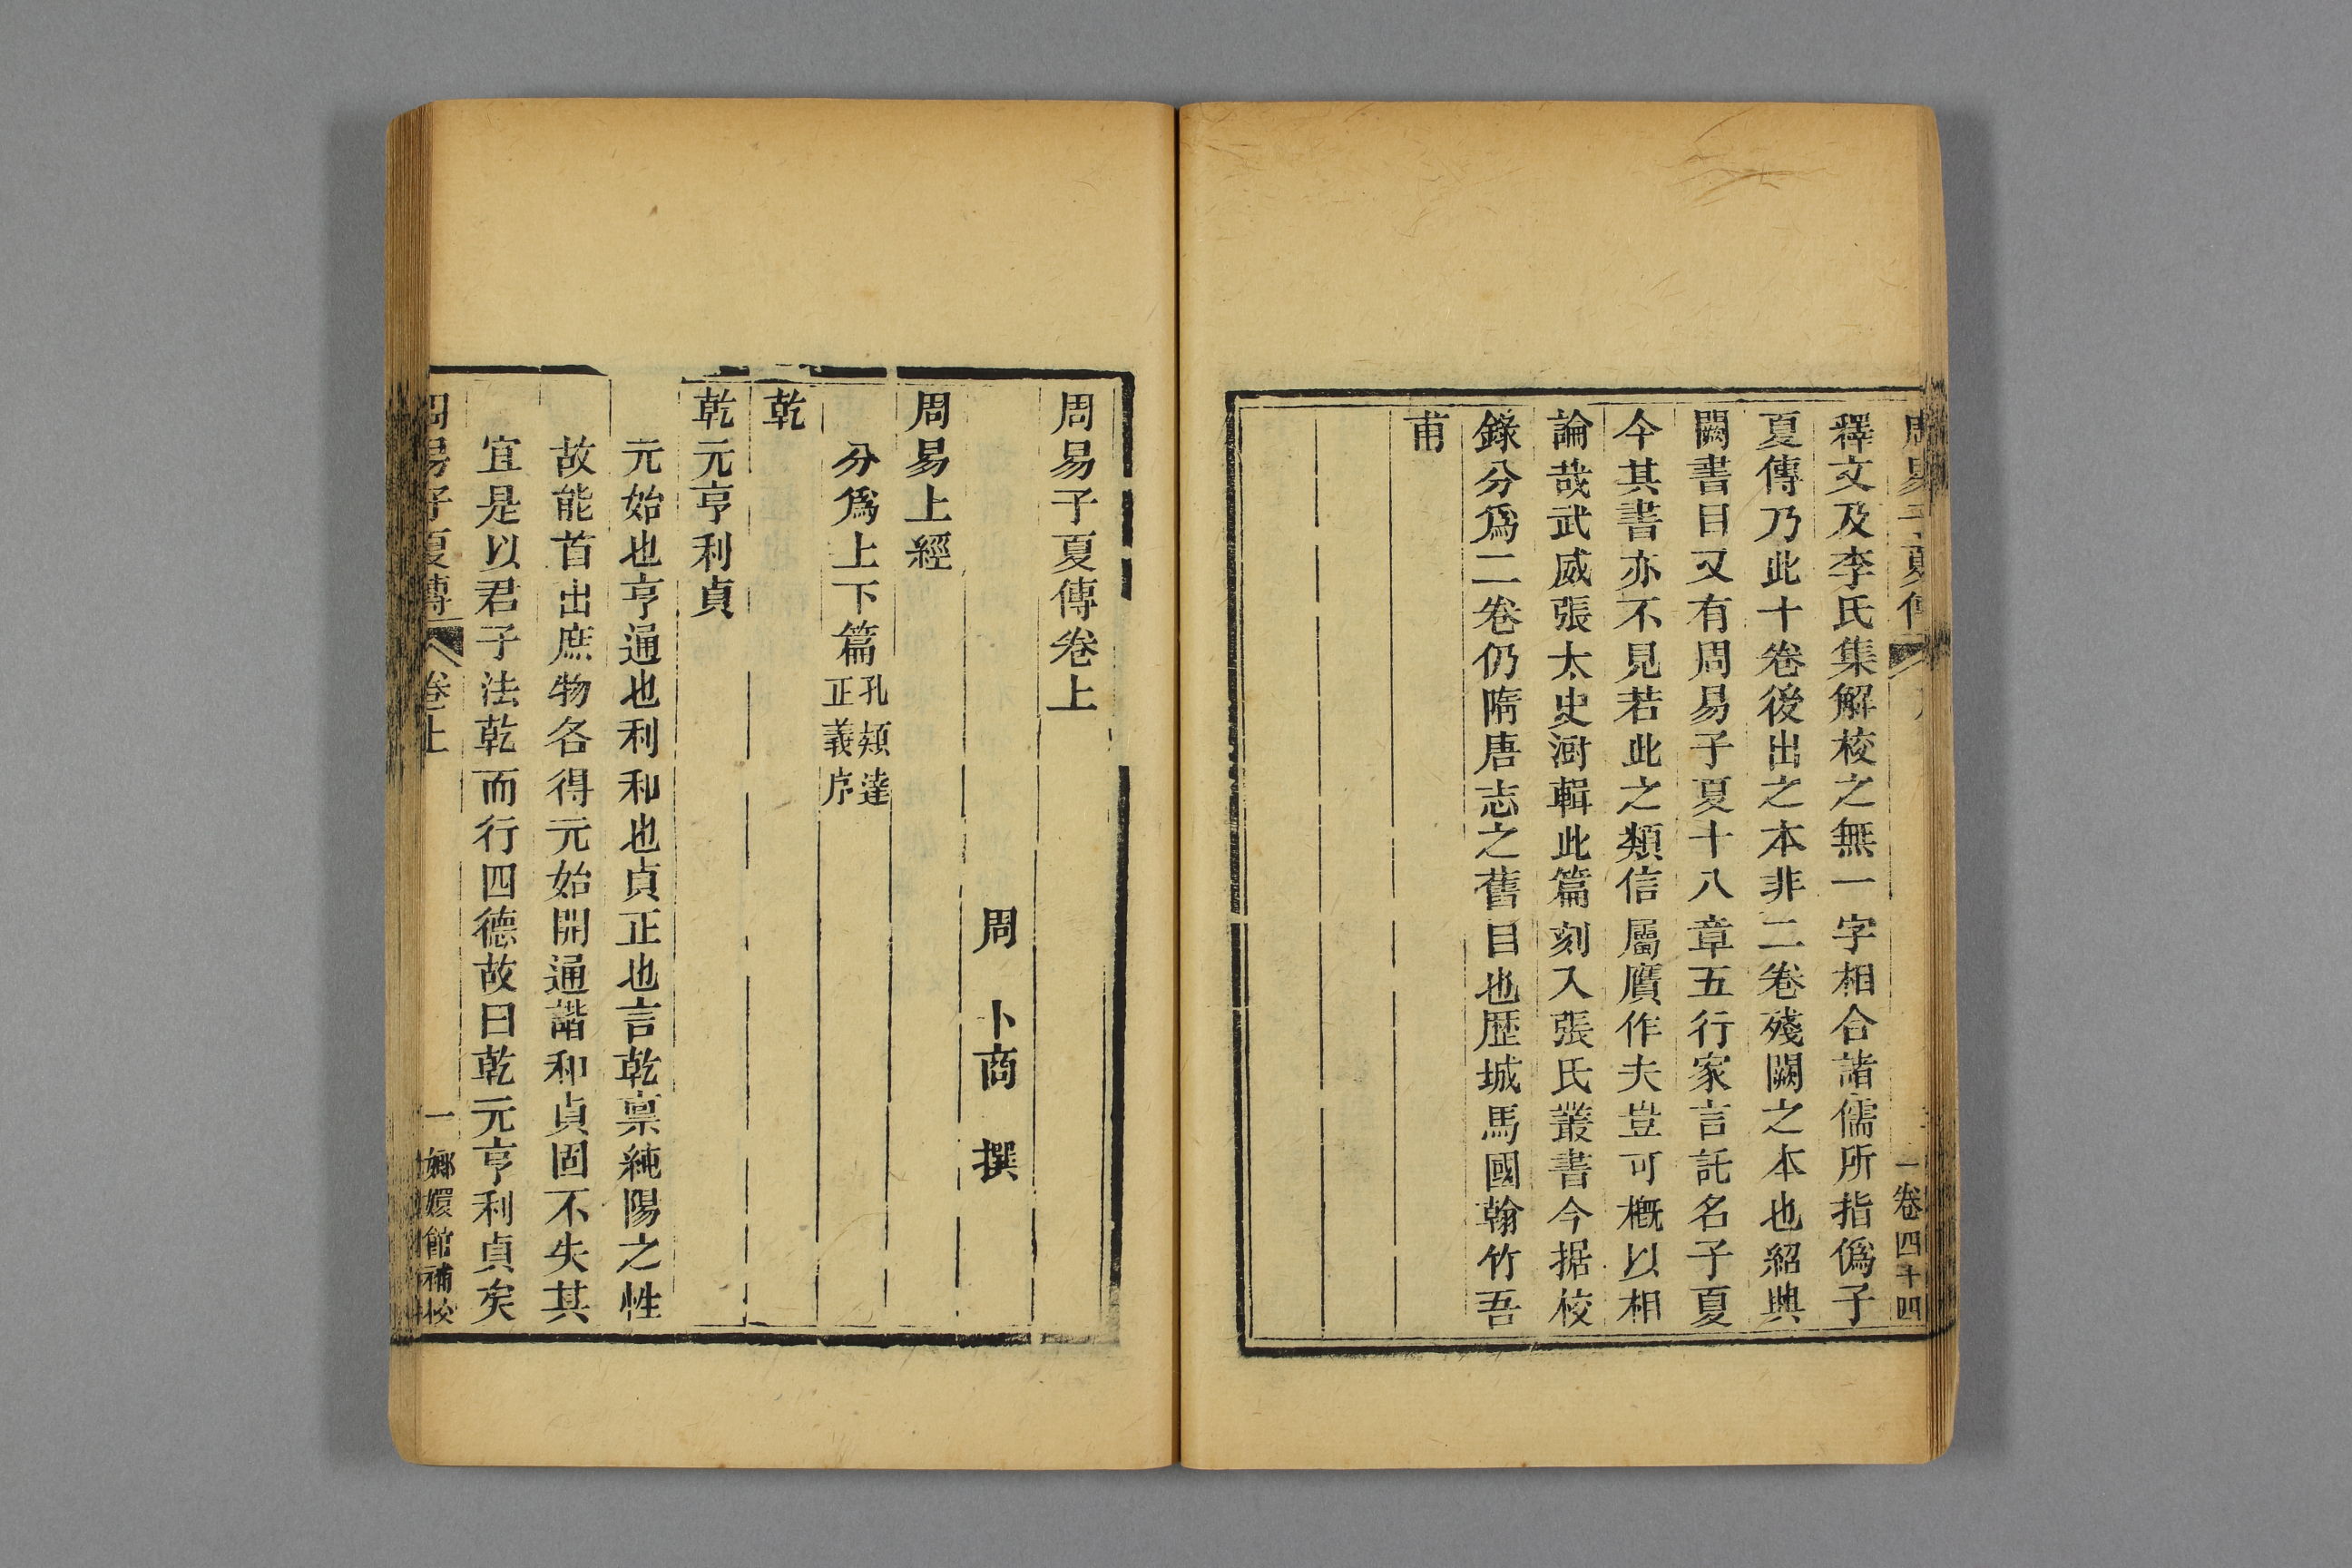 周易子夏傳 一卷四十四
釋文及李氏集解校之無一字相合諸儒所指僞子
夏傳乃此十卷後出之本非二卷殘闕之本也紹興
闕書目又有周易子夏十八章五行家言託名子夏
今其書亦不見若此之類信屬贋作夫豈可槪以相
論哉武威張太史澍輯此篇刻入張氏叢書今据校
錄分爲二卷仍隋唐志之舊目也歴城馬國翰竹吾
甫
周易子夏傳卷上
周 卜商 撰
周易上經
分爲上下篇孔頴達
正義序
乾
乾元亨利貞
元始也亨通也利和也貞正也言乾禀純陽之性
故能首出庶物各得元始開通諧和貞固不失其
宜是以君子法乾而行四德故曰乾元亨利貞矣
周易子夏傳 卷上 一 嫏嬛館補校